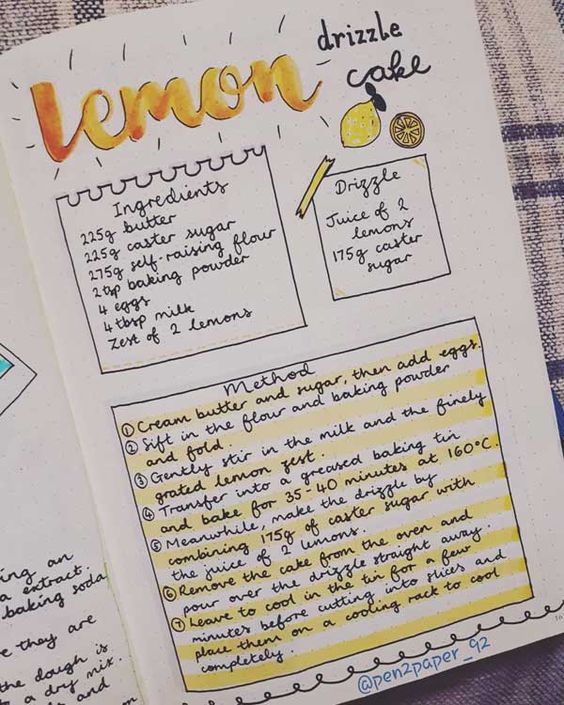 lemon
drizzle
cake
Ingredients
225g butter
225g caster sugar
275g self-raising flour
2 tsp baking powder
4 eggs
4 tbsp milk
Zest of 2 lemons
Drizzle
Juice of 2
lemons
175g caster
sugar
Method
① Cream butter and sugar, then add eggs.
② Sift in the flour and baking powder
and fold.
③ Gently stir in the milk and the finely
grated lemon zest.
④ Transfer into a greased baking tin
and bake for 35-40 minutes at 160°C.
⑤ Meanwhile, make the drizzle by
combining 175g of caster sugar with
the juice of 2 lemons.
⑥ Remove the cake from the oven and
pour over the drizzle straight away.
⑦ Leave to cool in the tin for a few
minutes before cutting into slices and
place them on a cooling rack to cool
completely.
@pen2paper_92
an
extract.
baking soda
they are
the dough is
a dry mix.
and